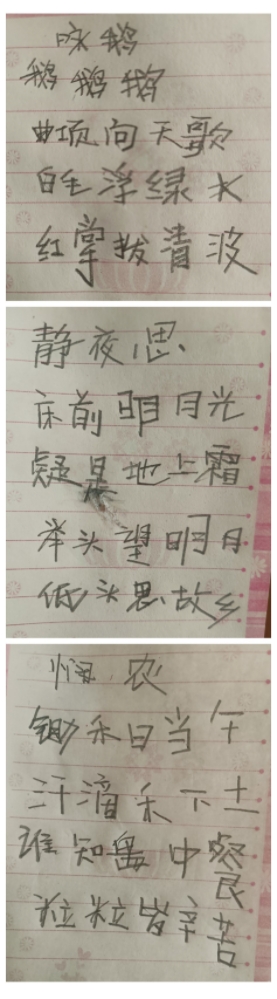 咏鹅
鹅鹅鹅
曲项向天歌
白毛浮绿水
红掌拨清波
静夜思
床前明月光
疑是地上霜
举头望明月
低头思故乡
悯农
锄禾日当午
汗滴禾下土
谁知盘中餐
粒粒岁辛苦